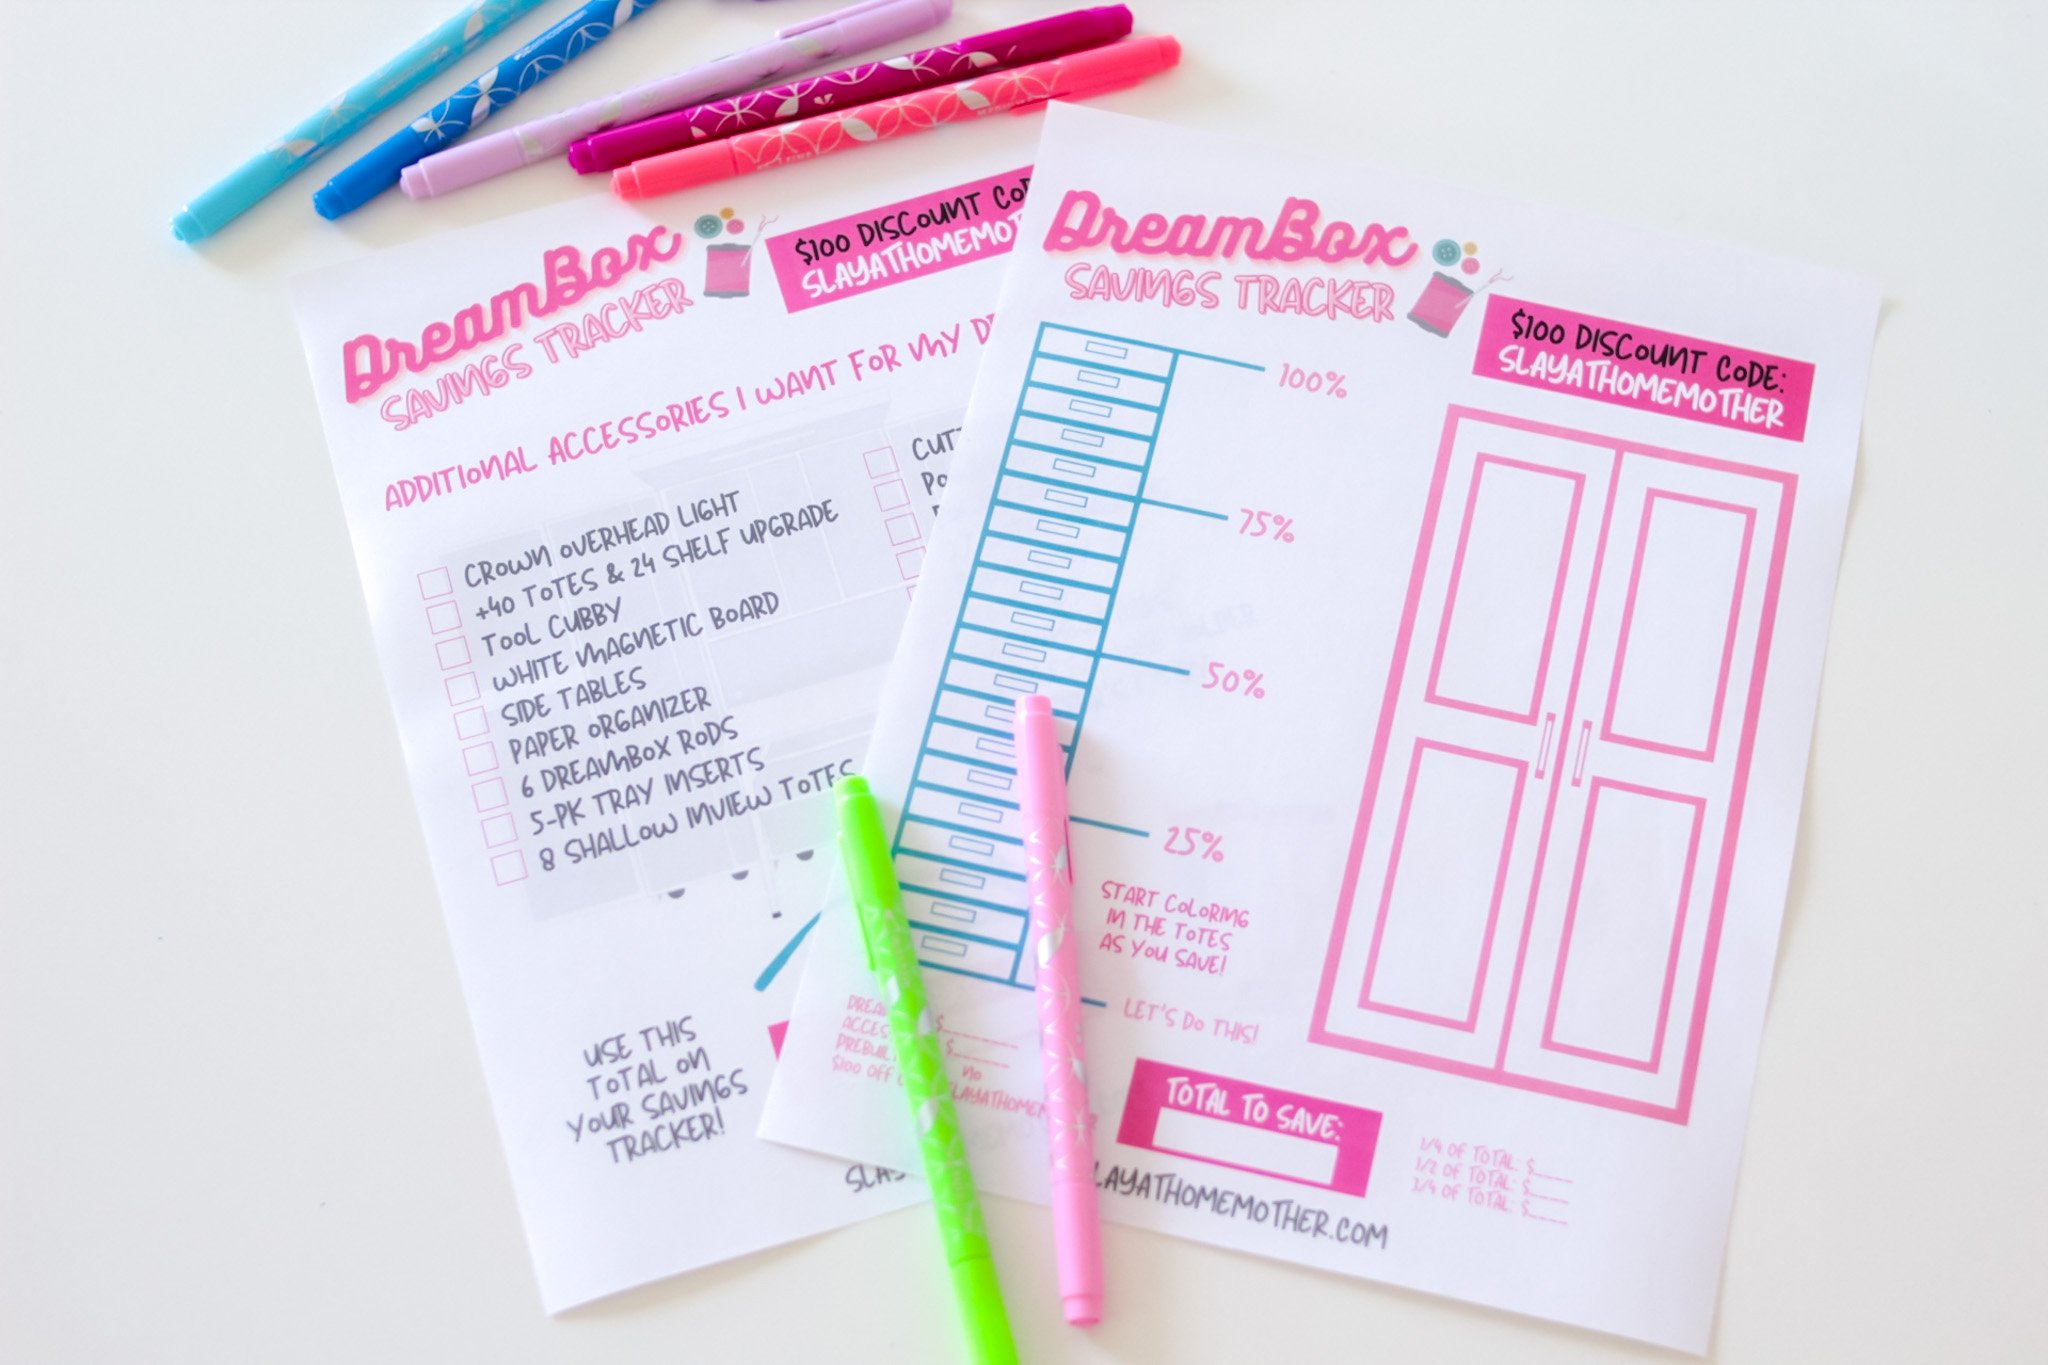 DreamBox
SAVINGS TRACKER
$100 DISCOUNT
SLAYATHOMEMO
ADDITIONAL ACCESSORIES I WANT FOR MY
CROWN OVERHEAD LIGHT
+40 TOTES & 24 SHELF UPGRADE
TOOL CUBBY
WHITE MAGNETIC BOARD
SIDE TABLES
PAPER ORGANIZER
6 DREAMBOX RODS
5-PK TRAY INSERTS
8 SHALLOW INVIEW TOTES
USE THIS
TOTAL ON
YOUR SAVINGS
TRACKER!
DreamBox
SAVINGS TRACKER
$100 DISCOUNT CODE:
SLAYATHOMEMOTHER
100%
75%
50%
25%
START COLORING
IN THE TOTES
AS YOU SAVE!
LET'S DO THIS!
$
$
$100 OFF
TOTAL TO SAVE:
1/4 OF TOTAL: $____
1/2 OF TOTAL: $____
3/4 OF TOTAL: $____
LAYATHOMEMOTHER.COM